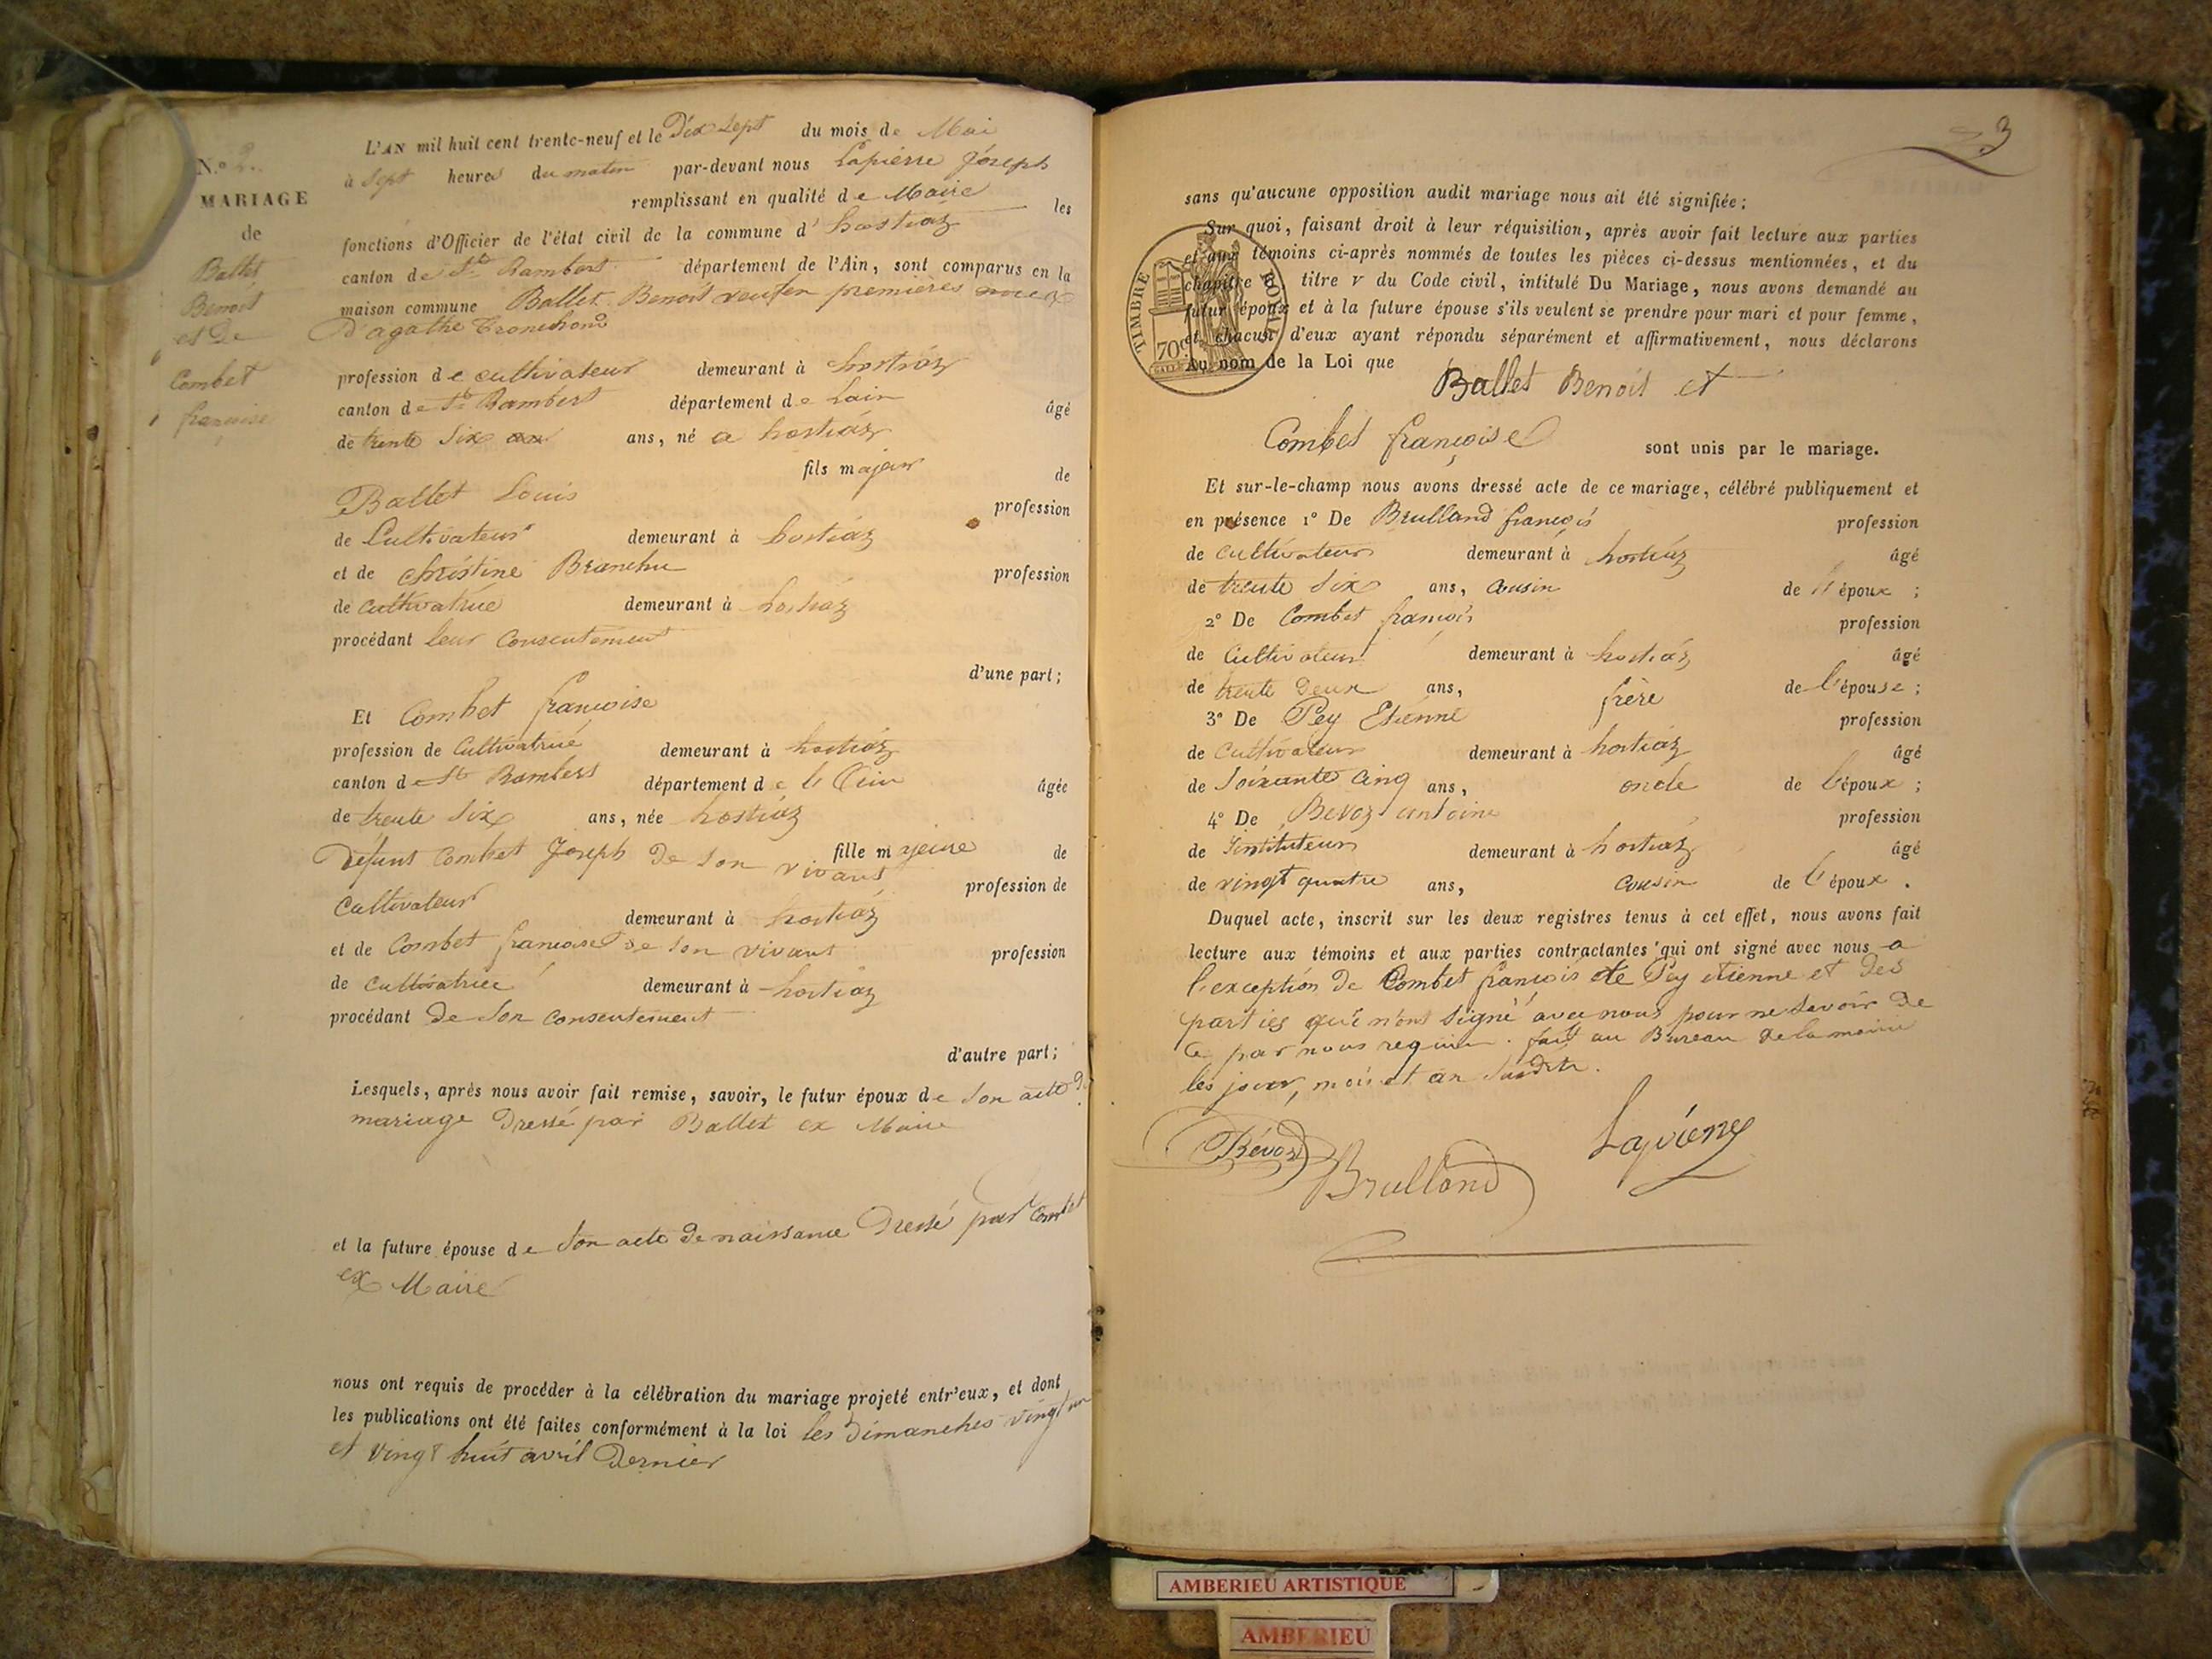 N.° 2.
MARIAGE
de
Ballet
Benoit
et De
Combet
françoise
L'AN mil huit cent trente-neuf et le Dix Sept du mois de Mai
à Sept heures du matin par-devant nous Lapierre Joseph
remplissant en qualité de Maire les
fonctions d'Officier de l'état civil de la commune d' hostiaz
canton de St Rambert département de l'Ain, sont comparus en la
maison commune Ballet Benoit veuf en premières noces
D'agathe Tronchon
profession de cultivateur demeurant à hostiaz
canton de St Rambert département de Lain âgé
de trente Six ans, né a hostiaz
fils majeur de
Ballet Louis profession
de Cultivateur demeurant à hostiaz
et de christine Branche profession
de cultivatrice demeurant à hostiaz
procédant leur Consentement
d'une part;
Et Combet françoise
profession de Cultivatrice demeurant à hostiaz
canton de St Rambert département de l'Ain âgée
de trente Six ans, née hostiaz
fille majeure de
Défunt Combet Joseph De Son vivant profession de
Cultivateur demeurant à hostiaz
et de Combet françoise De Son vivant profession
de Cultivatrice demeurant à hostiaz
procédant de Son Consentement
d'autre part;
Lesquels, après nous avoir fait remise, savoir, le futur époux de Son acte De
mariage Dressé par Ballet ex Maire
et la future épouse de Son acte de naissance Dressé par Combet
ex Maire
nous ont requis de procéder à la célébration du mariage projeté entr'eux, et dont
les publications ont été faites conformément à la loi les Dimanches vingt un
et vingt huit avril Dernier
3
sans qu'aucune opposition audit mariage nous ait été signifiée;
Sur quoi, faisant droit à leur réquisition, après avoir fait lecture aux parties
et aux témoins ci-après nommés de toutes les pièces ci-dessus mentionnées, et du
chapitre titre V du Code civil, intitulé Du Mariage, nous avons demandé au
futur époux et à la future épouse s'ils veulent se prendre pour mari et pour femme,
et chacun d'eux ayant répondu séparément et affirmativement, nous déclarons
Au nom de la Loi que
TIMBRE ROYAL
70c
Ballet Benoit et
Combet françoise sont unis par le mariage.
Et sur-le-champ nous avons dressé acte de ce mariage, célébré publiquement et
en présence 1° De Brulland françois profession
de cultivateur demeurant à hostiaz âgé
de trente Six ans, cousin de l'époux ;
2° De Combet françois profession
de Cultivateur demeurant à hostiaz âgé
de trente Deux ans, frère de l'épouse ;
3° De Pey Etienne profession
de Cultivateur demeurant à hostiaz âgé
de Soixante cinq ans, oncle de l'époux ;
4° De Bevoz antoine profession
de Instituteur demeurant à hostiaz âgé
de vingt quatre ans, cousin de l'époux .
Duquel acte, inscrit sur les deux registres tenus à cet effet, nous avons fait
lecture aux témoins et aux parties contractantes qui ont signé avec nous a
l'exception De Combet françois de Pey etienne et des
parties qui n'ont Signé avec nous pour ne Savoir De
Ce par nous requis . fait au Bureau de la mairie
les jour, mois et an Susdits.
Bévoz
Brulland
Lapierre
AMBERIEU ARTISTIQUE
AMBERIEU